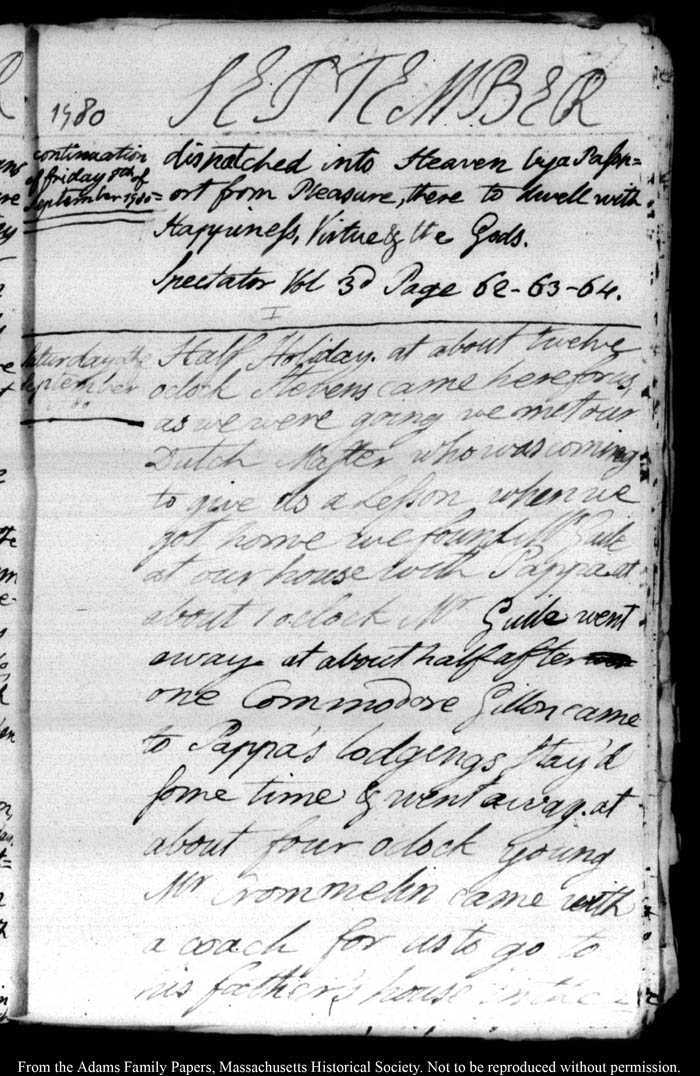 SEPTEMBER
1780
continuation
of friday 8th of
September 1780=
dispatched into Heaven by a Passp=
ort from Pleasure, there to dwell with
Happiness, Virtue & the Gods.
Spectator Vol 3d Page 62-63-64.
Saturday the
September
Half Holiday. at about twelve
oclock Stevens came here for us,
as we were going we met our
Dutch Master who was coming
to give us a Lesson when we
got home we found Mr. Guile
at our house with Pappa at
about 1 oclock Mr Guile went
away at about half after
one Commodore Gillon came
to Pappa's lodgings stay'd
some time & went away. at
about four oclock young
Mr Crommelin came with
a coach for us to go to
his father's house in the
From the Adams Family Papers, Massachusetts Historical Society. Not to be reproduced without permission.